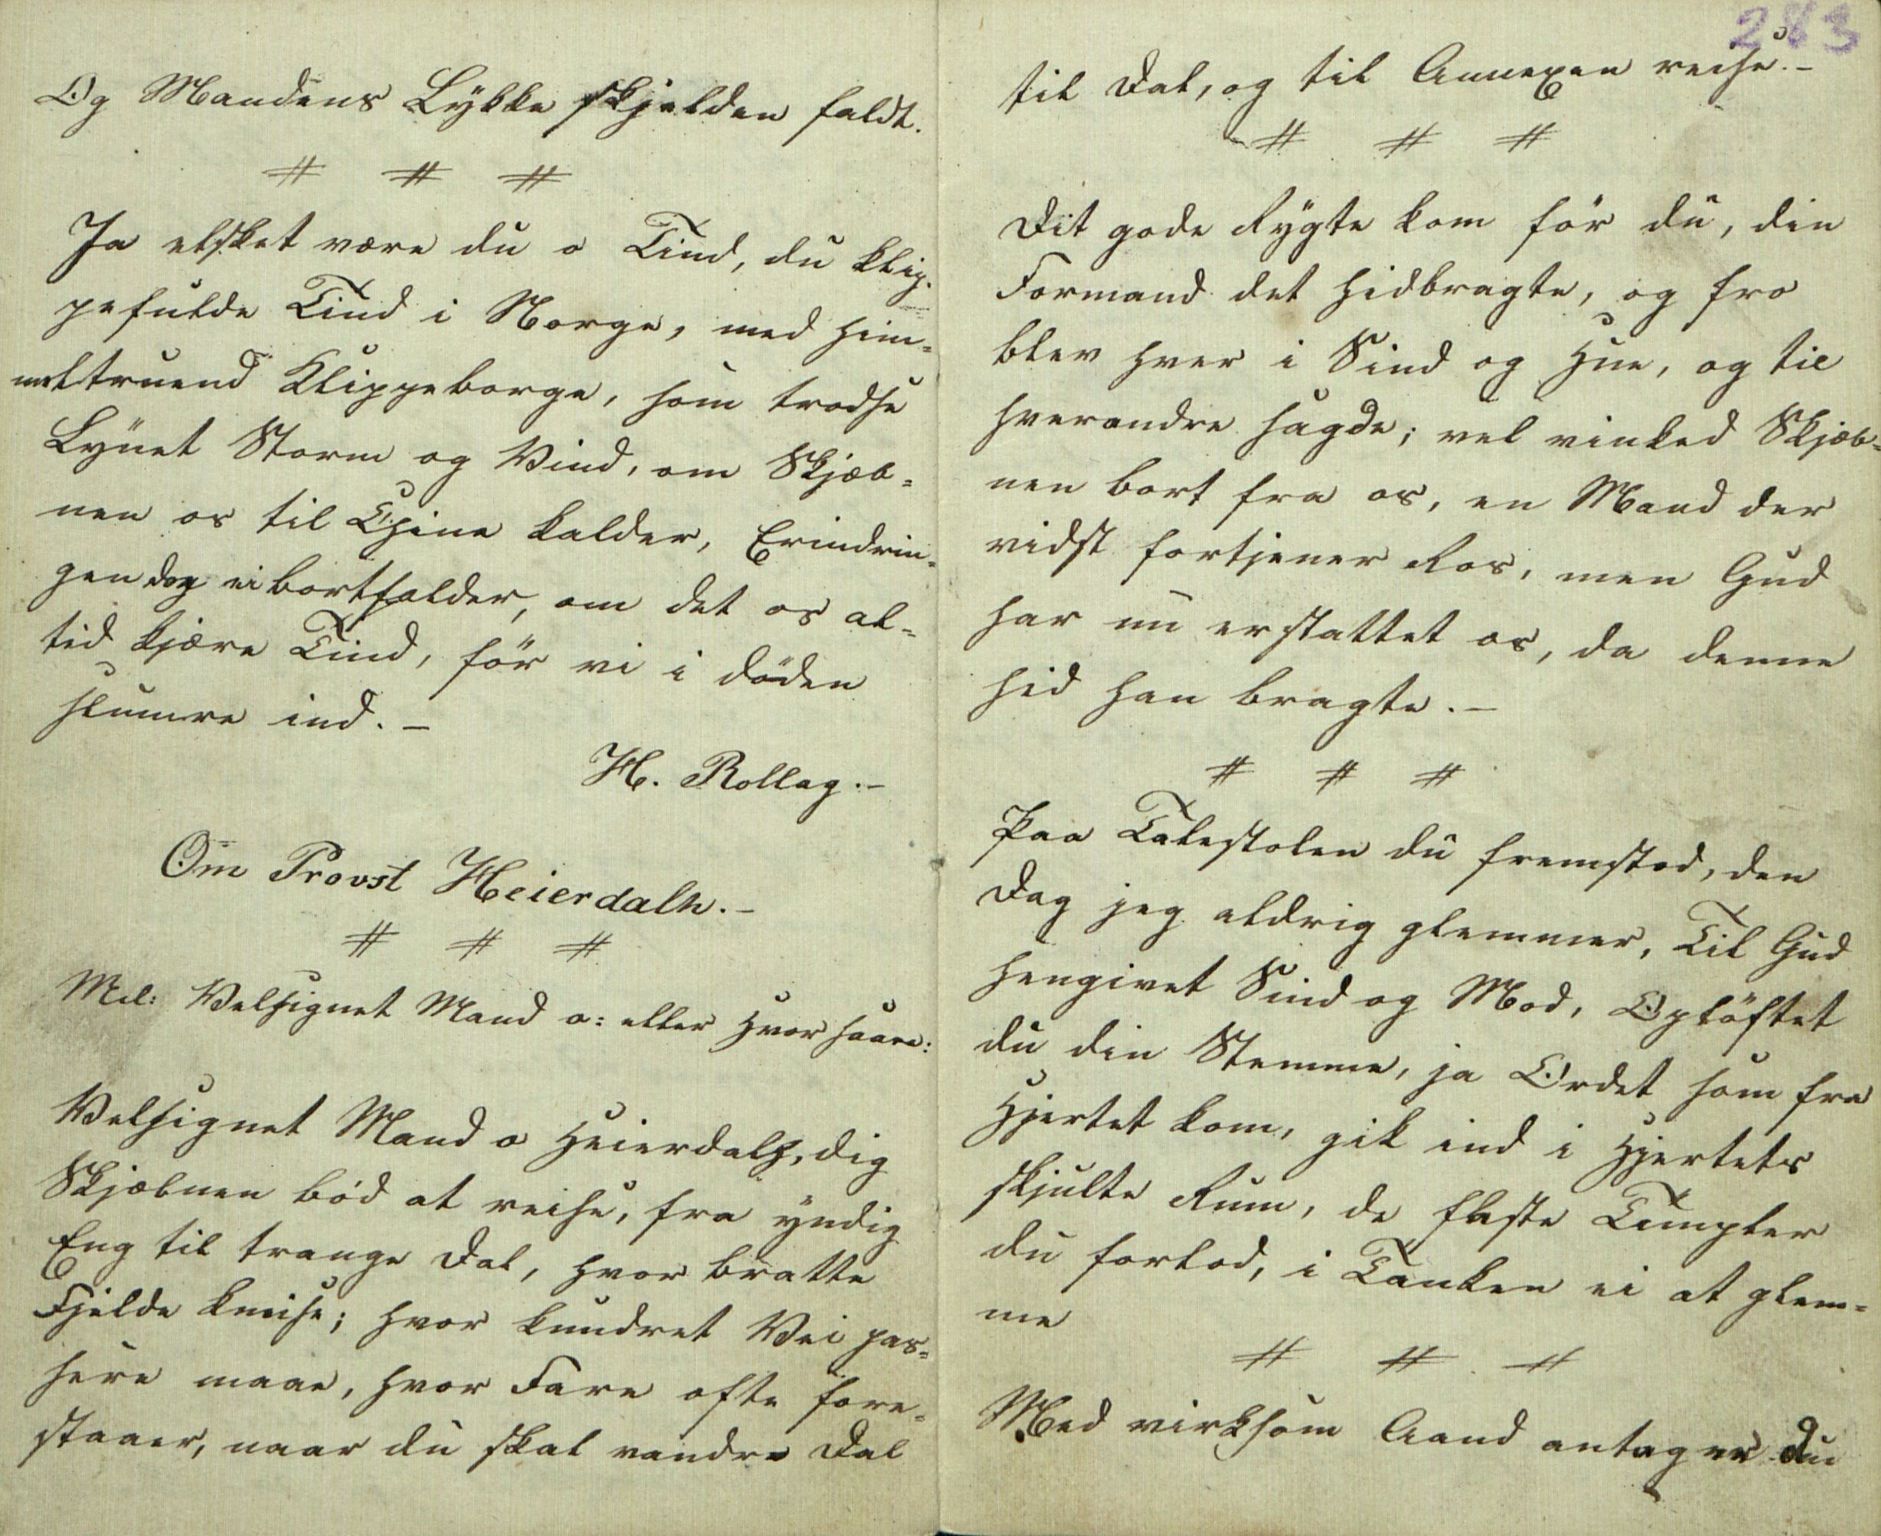 Og Mandens Lykke skjelden faldt.
# # #
Ja elsket være du o Tind, du klip-
pefulde Tind i Norge, med him-
meltruend Klippeborge, som trodse
Lynet Storm og Vind, om Skjæb-
nen os til China kalder, Erindrin-
gen dog ei bortfalder, om det os al-
tid kjære Tind, før vi i døden
slumre ind. –
H. Rollag. –
Om Provst Heierdalh. –
# # #
Mel: Velsignet Mand o: eller Hvor saare:
Velsignet Mand o Heierdalh, dig
Skjæbnen bød at reise, fra yndig
Eng til trange Dal, hvor bratte
Fjelde kneise; hvor hundret Vei pas-
sere maae, hvor Fare ofte fore-
staaer, naar du skal vandre Dal
283
til Dal, og til Annexen reise. –
# # #
Dit gode Rygte kom før du, din
Formand det hidbragte, og fro
blev hver i Sind og Hue, og til
hverandre sagde; vel vinked Skjæb-
nen bort fra os, en Mand der
vidst fortjener Ros, men Gud
har nu erstattet os, da denne
hid han bragte. –
# # #
Paa Talestolen du fremstod, den
Dag jeg aldrig glemmer, Til Gud
hengivet Sind og Mod, Opløftet
du din Stemme, ja Ordet som fra
Hjertet kom, gik ind i Hjertets
skjulte Rum, de fleste Templer
du forlod, i Tanken ei at glem-
me
# # #
Med virksom Aand antager du